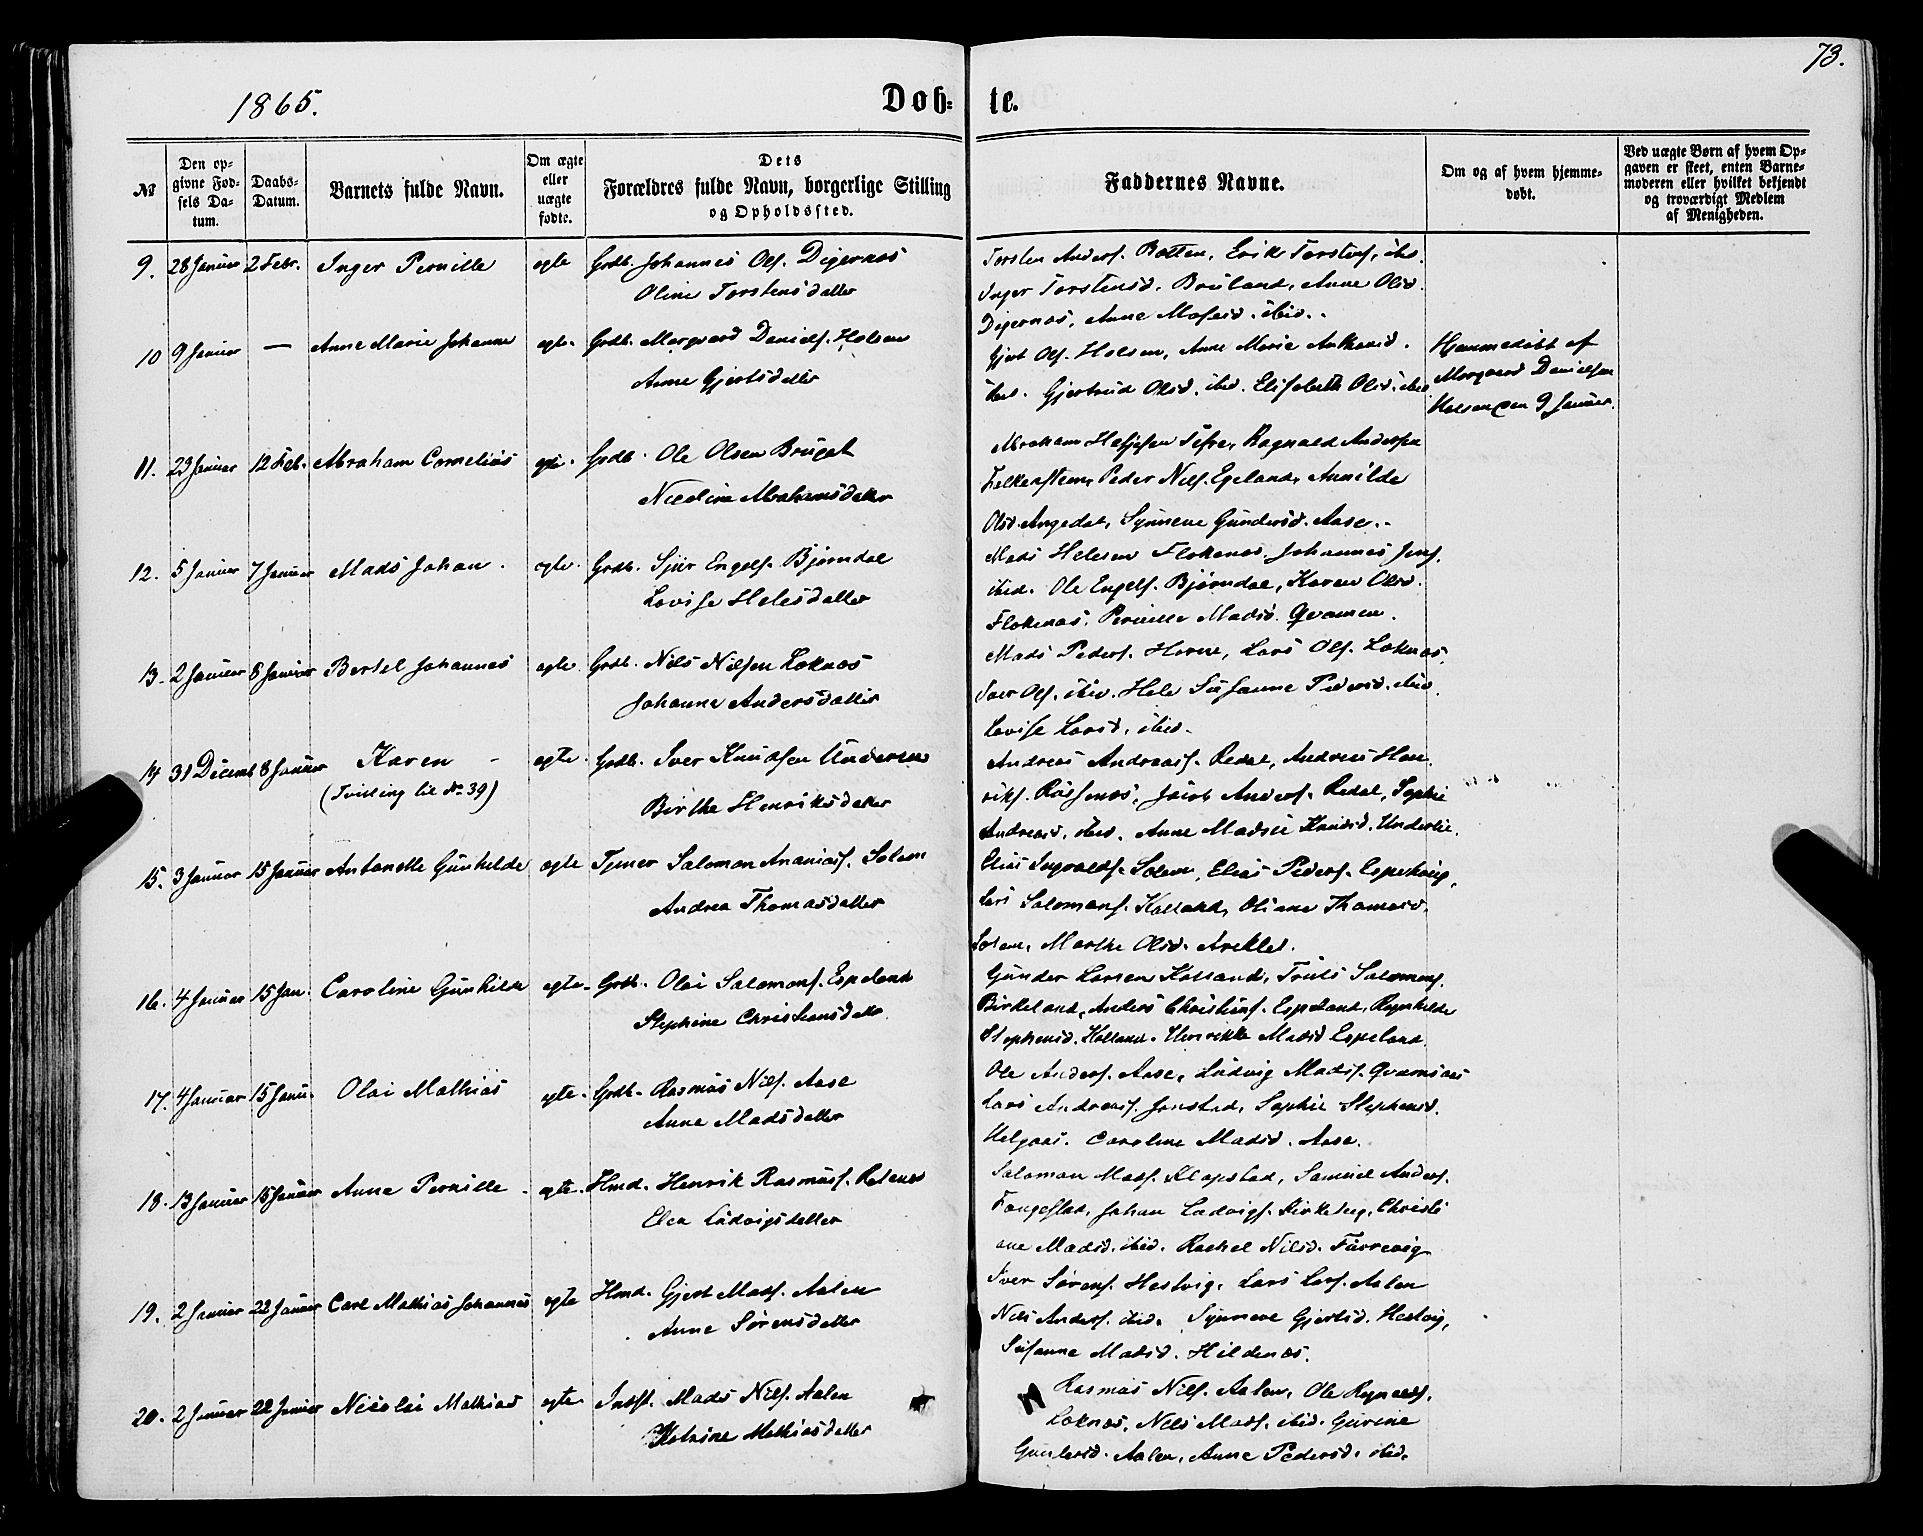 73.
1865. Døb- te.
№
Den opgivne Fødsels Datum.
Daabs-Datum.
Barnets fulde Navn.
Om ægte eller uægte fødte.
Dets Forældres fulde Navn, borgerlige Stilling og Opholdssted.
Faddernes Navne.
Om og af hvem hjemmedøbt.
Ved uægte Børn af hvem Opgaven er skeet, enten Barnemoderen eller hvilket bekjendt og troværdigt Medlem af Menigheden.
9. 28 Januar 2 Febr. Inger Pernille egte Grdb. Johannes Ols. Digernæs
Oline Torstensdatter
Torsten Anders. Botten, Erik Torstens. ibid.
Inger Torstensd. Bruland, Anne Olsd.
Digernæs, Anne Madsd. ibid.
10 9 Januar — Anne Marie Johanne egte. Grdb. Margvard Daniels. Holsen
Anne Gjertsdatter
Gjert Ols. Holsen, Anne Marie Anthonid.
ibid. Gjertrud Olsd. ibid. Elisabeth Olsd. ibid
Hjemmedøbt af
Margvard Danielsen
Holsen den 9 Januar.
11. 23 Januar 12 Feb. Abraham Cornelius egte. Grdb. Ole Olsen
Nicoline Abrahamsdatter
Abraham Ragnald Andersen
Peder Nils. Egeland, Annilde
Olsd. Angedal, Synneve Gundersd. Aase.
12. 5 Januar 7 Januar Mads Johan. egte. Grdb. Sjur Engels. Bjørndal
Lovise Helesdatter
Mads Helesen Flokenæs, Johannes Jens.
ibid. Ole Engels. Bjørndal, Karen Olsd.
Flokenæs, Pernille Madsd. Qvamen.
13. 2 Januar 8 Januar Bertel Johannes egte Grdb. Nils Nilsen Loknæs
Johanne Andersdatter
Mads Peders. Horne, Lars Ols. Loknæs,
Iver Ols. ibid. Hele Susanne Pedersd. ibid.
Lovise Larsd. ibid.
14 31 Decemb 8 Januar Karen egte Grdb. Iver Knudsen Underlien
(Tvilling til No 39)
Birthe Henriksdatter
Andreas Andreass. Redal, Andreas Hen
riks. Russenæs, Jacob Anders. Redal, Sophie
Andreasd. ibid. Anne Madsie Knudsd. Underlie.
15. 3 Januar 15 Januar Antonette Gunhilde egte Tjener Salomon Ananias. Solem
Andrea Thomasdatter
Elias Ingvalds. Solem, Elias Peders. Espehøug,
Lars Salomons. Kalland, Oliane Thomasd.
Solem, Marthe Olsd. Areklet.
16. 4 Januar 15 Jan. Caroline Gunhilde egte. Grdb. Olai Salomons. Espeland
Stephine Christensdatter
Gunder Larsen Kalland, Truls Salomons.
Birkeland, Anders Christens. Espeland, Ragnhilde
Stephensd. Kalland. Henrikke Madsd Espeland.
17. 4 Januar 15 Janu. Olai Mathias egte. Grdb. Rasmus Nils. Aase
Anne Madsdatter
Ole Anders. Aase, Ludvig Mads. Qvamsaas
Lars Andreass. Jonstad, Sophie Stephensd.
Helgaas. Caroline Madsd. Aase.
18. 13 Januar 15 Januar Anne Pernille egte. Hmd. Henrik Rasmuss.
Elen Ludvigsdatter
Salomon Mads. Klopstad, Samuel Anders.
Fougestad, Johan Ludvigs. Kirkeby, Christi
ane Madsd. ibid. Rachel Nilsd. Furrevig
19. 2 Januar 22 Januar Carl Mathias Johannes egte Hmd. Gjert Mads. Aalen
Anne Sørensdatter
Iver Sørens. Hestvig, Lars Lars. Aalen
Nils Anders. ibid. Synneve Gjertsd. Hestvig,
Susanne Madsd. Hildenæs.
20. 2 Januar 22 Januar Nicolai Mathias egte. Indst. Mads Nils. Aalen
Katrine Mathiasdatter
Rasmus Nils. Aalen, Ole Ragnalds.
Loknæs, Nils Mads. ibid. Gurine
Gundersd. Aalen, Anne Pedersd. ibid.